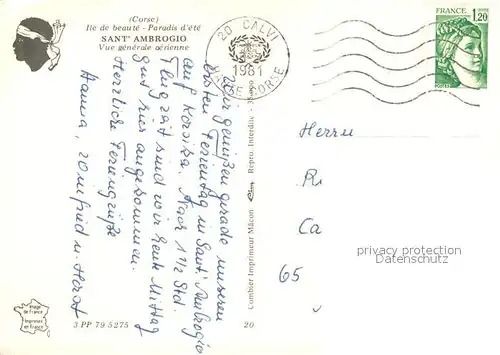 (Corse)
Ile de beauté - Paradis d'été
SANT' AMBROGIO
Vue générale aérienne
20 CALVI
1981
HAUTE CORSE
FRANCE
1,20
POSTES
Wir genießen gerade unseren
ersten Ferientag in Sant' Ambrogio
auf Korsika. Nach 1 1/2 Std.
Flugzeit sind wir heute Mittag
gut hier angekommen.
Herzliche Feriengrüße
Hanna, und Horst
Combier Imprimeur Mâcon
Repro. Interdite
Herrn
R
Ca
65
privacy protection
Datenschutz
Image de France
Imprimée en France
3 PP 79 5275
20